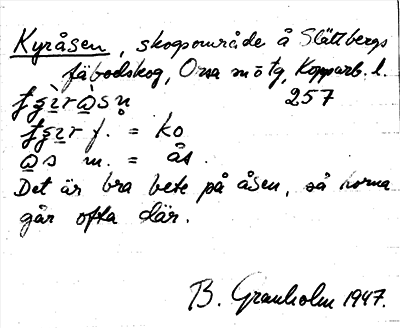 Kyråsen, skogsområde å Slättbergs
fäbodskog, Orsa sn o tg, Kopparb. l.
257
f. = ko
m. = ås.
Det är bra bete på åsen, så korna
går ofta där.
B. Granholm 1947.